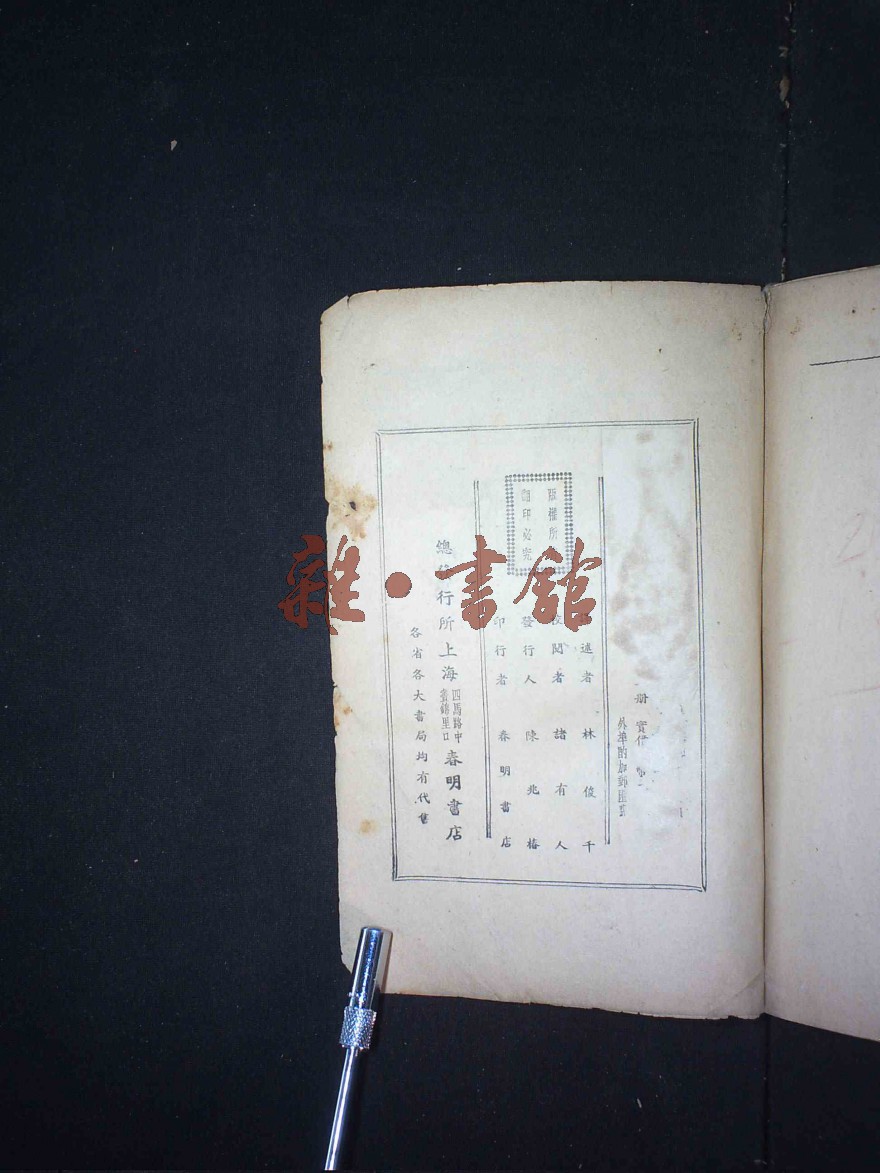 册 實價
外埠酌加郵匯費
版權所
翻印必究
述者 林俊千
校閱者 諸有人
發行人 陳兆椿
印行者 春明書店
總發行所 上海 四馬路中 舊錦里口 春明書店
各省各大書局均有代售
雜·書館